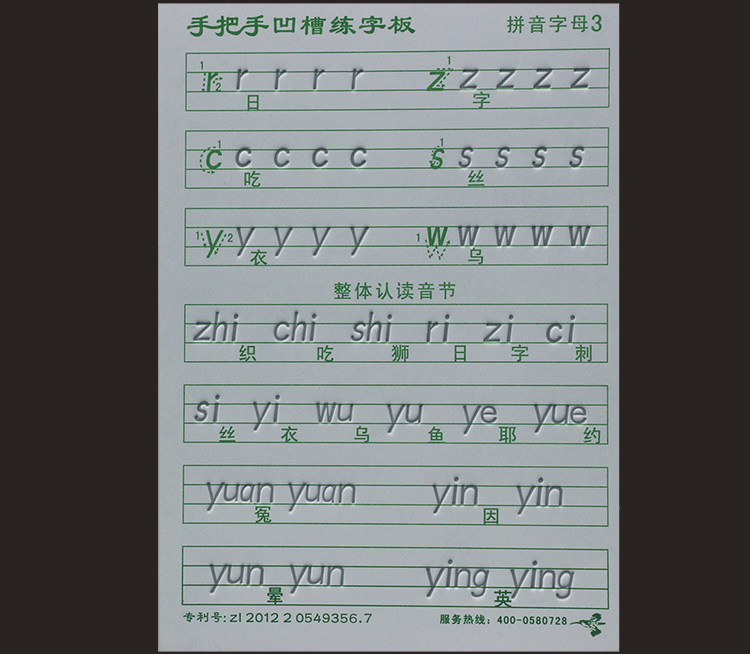 手把手凹槽练字板 拼音字母3
1 2 r r r r r 1 z z z z z
日 字
1 c c c c c 1 s s s s s
吃 丝
1 2 y y y y y 1 w w w w w
衣 乌
整体认读音节
zhi chi shi ri zi ci
织 吃 狮 日 字 刺
si yi wu yu ye yue
丝 衣 乌 鱼 耶 约
yuan yuan yin yin
冤 因
yun yun ying ying
晕 英
专利号: zl 2012 2 0549356.7 服务热线: 400-0580728